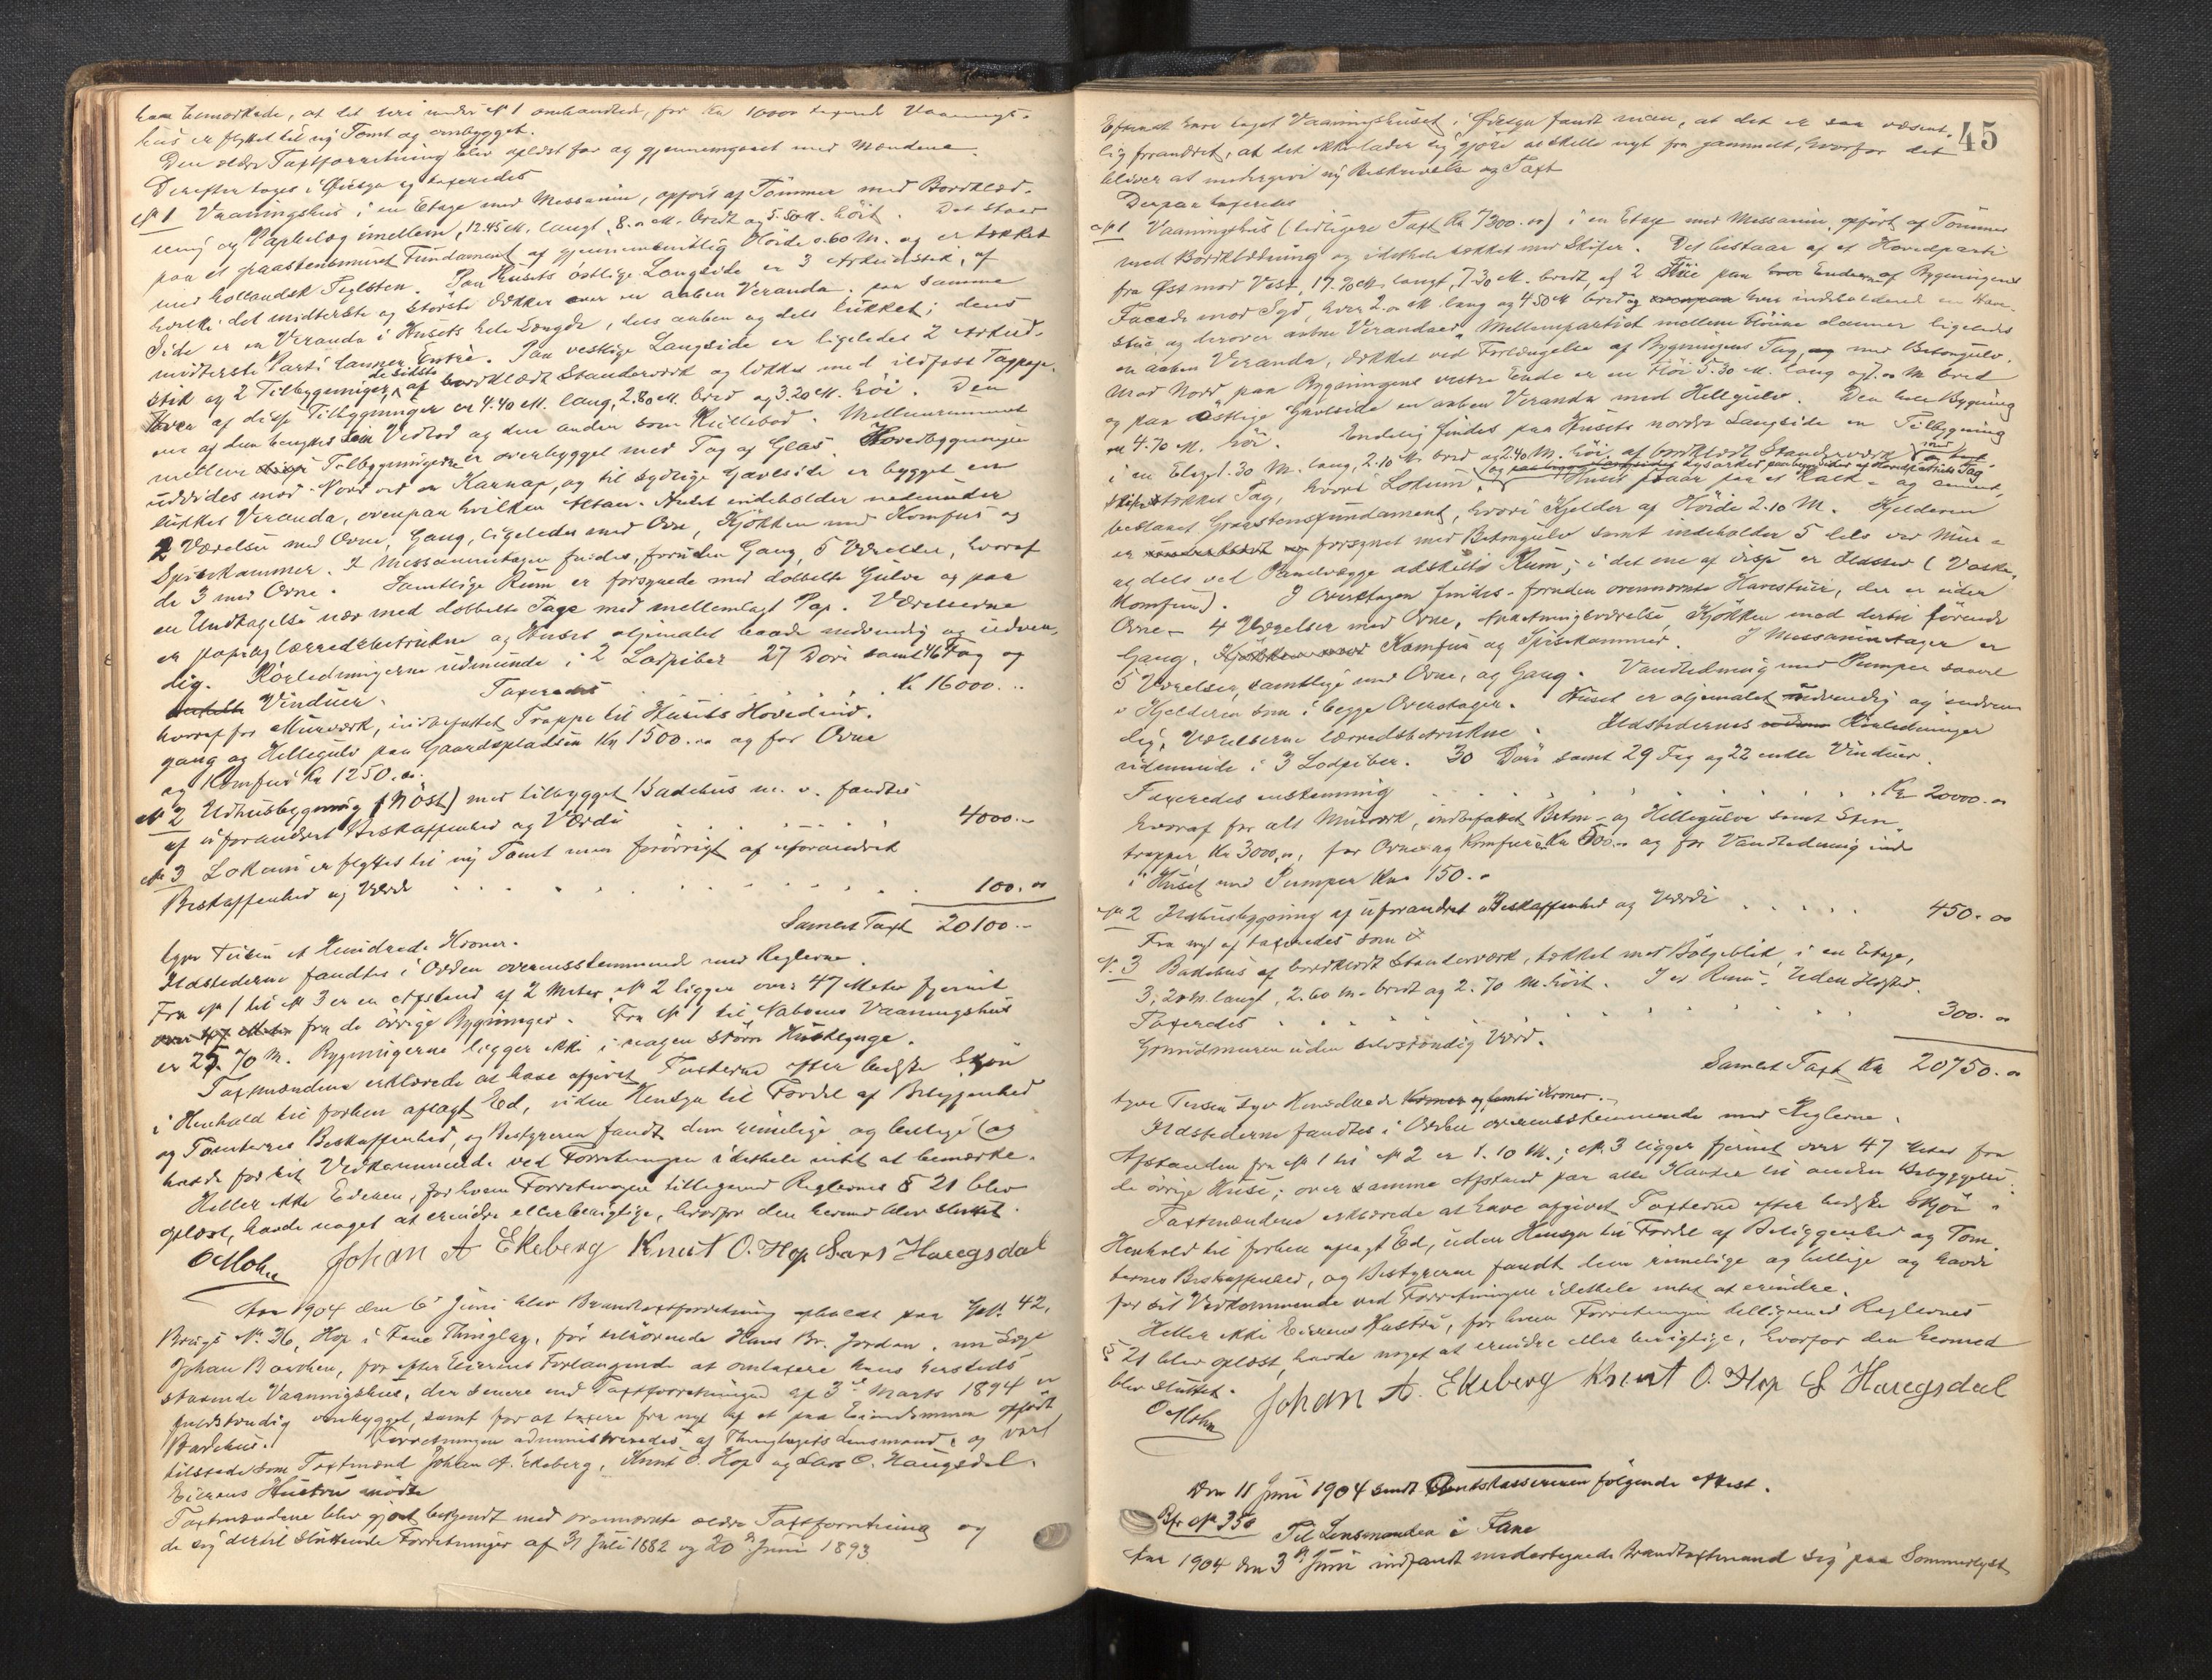 bemærkede, at det under № 1 omhandlede, for Kr 10000 taxerede Vaanings-
hus er flyttet til ny Tomt og ombygget.
Den ældre Taxtforretning blev oplæst for og gjennemgaaet med Mændene.
Derefter toges i Øiesyn og taxeredes
№ 1 Vaaningshus i en Etage med Messanin, opført af Tømmer med Bordklæd-
ning og Papbelæg imellem, 12.45 M. langt, 8.00 M. bredt og 5.50 M. høit. Det staar
paa et graastensmuret Fundament af gjennemsnitlig Høide 0.60 M. og er tækket
med hollandsk Teglsten. Paa Husets østlige Langside er 3 Arkudstik, af
hvilke det midterste og største dækker over en aaben Veranda. paa samme
Side er en Veranda i Husets hele Længde, dels aaben og dels lukket; dens
midterste Parti danner Entrè. Paa vestlige Langside er ligeledes 2 Arkud-
stik og 2 Tilbygninger, de sidste af bordklædt Standerværk og tækket med ildfast Tagpap.
Hver af disse Tilbygninger er 4.40 M. lang, 2.80 M. bred og 3.20 M. høi. Den
ene af dem benyttes som Vedbod og den anden som Rullebod. Mellemrummet
mellem Tilbygningerne er overbygget med Tag af Glas. Hovedbygningen
udvides mod Nord ved en Karnap, og til sydlige Gavlside er bygget en
lukket Veranda, ovenpaa hvilken Altan. Huset indeholder nedunder
2 Værelser med Ovne, Gang, ligeledes med Ovn, Kjøkken med Komfur og
Spisekammer. I Messaninetagen findes, foruden Gang, 5 Værelser, hvoraf
de 3 med Ovne. Samtlige Rum er forsynede med dobbelte Gulve og paa
en Undtagelse nær med dobbelte Tage med mellemlagt Pap. Værelserne
er pap og lærredsbetrukne og Huset oljemalet baade indvendig og udven-
dig. Rørledningerne udmunde i 2 Lodpiber 27 Døre samt 46 Fag og
Vinduer. Taxeredes . . . Kr 16000. ..
hvoraf for Murværk, indbefattet Trappe til Husets Hovedind-
gang og Hellegulv paa Gaardspladsen Kr 1500.00 og for Ovne
og Komfur Kr 1250.00.
№ 2 Udhusbygning (Nøst) med tilbygget Badehus m. v. fandtes
af uforandret Beskaffenhed og Værdi . . . . . 4000.--
№ 3 Lokum er flyttet til ny Tomt men forøvrigt af uforandret
Beskaffenhed og Værdi . . . . . . . . . . . . 100.00
Samlet Taxt 20100.--
tyve Tusen et Hundrede Kroner.
Ildstederne fandtes i Orden overensstemmende med Reglerne.
Fra № 1 til № 3 er en Afstand af 2 Meter, № 2 ligger over 47 Meter fjernet
over 47 Meter fra de øvrige Bygninger. Fra № 1 til Naboens Vaaningshus
er 25.70 M. Bygningerne ligger ikke i nogen større Husklynge.
Taxtmændene erklærede at have afgivet Taxterne efter bedste Skjøn
i Henhold til forhen aflagt Ed, uden Hensyn til Fordel af Beliggenhed
og Tomternes Beskaffenhed, og Bestyreren fandt dem rimelige og billige og
havde for sit Vedkommende ved Forretningen idethele intet at bemærke.
Heller ikke Eieren, for hvem Forretningen tilligemed Reglernes § 21 blev
oplæst, havde noget at erindre eller berigtige, hvorfor den hermed blev sluttet.
O Mohn Johan A Ekeberg Knut O. Hop Lars Haugsdal
Aar 1904 den 6te Juni blev Brandtaxtforretning afholdt paa G.№ 42,
Brugs № 26, Hop i Fane Thinglag, før tilhørende Hans Br. Jordan, nu Læge
Johan Bøgh, for efter Eierens Forlangende at omtaxere hans hersteds
staaende Vaaningshus, der senere end Taxtforretningen af 3de Marts 1894 er
fuldstændig ombygget, samt for at taxere fra nyt af et paa Eiendommen opført
Badehus. Forretningen administreredes af Thinglagets Lensmand, og var
tilstede som Taxtmænd Johan A. Ekeberg, Knut O. Hop og Lars O. Haugsdal.
Eierens Hustru mødte
Taxtmændene blev gjort bekjendt med ovennævnte ældre Taxtforretning og
de sig dertil sluttende Forretninger af 31 Juli 1882 og 20de Juni 1893
45
Efterat have taget Vaaningshuset i Øiesyn fandt man, at det er saa væsent-
lig forandret, at det ikke lader sig gjøre at skille nyt fra gammelt, hvorfor det
bliver at undergive ny Beskrivelse og Taxt
Derpaa taxeredes
№ 1 Vaaningshus (tidligere Taxt Kr 7300.00) i en Etage med Messanin, opført af Tømmer
med Bordklædning og idethele tækket med Skifer. Det bestaar af et Hovedparti
fra Øst mod Vest, 17.70 M. langt, 7.30 M. bredt, af 2 Fløie paa Enderne af Bygningens
Facade mod Syd, hver 2.00 M. lang og 4.50 M bred og hver indeholdende en Have-
stue og derover aabne Verandaer. Mellempartiet mellem Fløiene danner ligeledes
en aaben Veranda, dækket ved Forlængelse af Bygningens Tag, og med Betongulv.
Mod Nord paa Bygningens vestre Ende er en Fløi 5.30 M. lang og 7.00 M bred
og paa østlige Gavlside en aaben Veranda med Hellegulv. Den hele Bygning
er 4.70 M. høi. Endelig findes paa Husets nordre Langside en Tilbygning
i en Etage 1.30 M. lang, 2.10 M. bred og 2.40 M. høi, af bordklædt Standerværk med
skifertækket Tag, hvori Lokum. Huset staar paa et Kalk- og cement-
beslaaet Graastensfundament, hvori Kjelder af Høide 2.10 M. Kjelderen
er forsynet med Betongulv samt indeholder 5 dels ved Mur-
og dels ved Panelvægge adskilte Rum; i det ene af disse er Ildsted (Vaske-
Komfur). I Overetagen findes - foruden ovennævnte Havestuer, der er uden
Ovne - 4 Værelser med Ovne, Anretningsværelse, Kjøkken med dertil førende
Gang, Komfur og Spisekammer. I Messaninetagen er
5 Værelser, samtlige med Ovne, og Gang. Vandledning med Pumper saavel
i Kjelderen som i begge Overetager. Huset er oljemalet udvendig og indven-
dig, Værelserne lærredsbetrukne. Ildstedernes Rørledninger
udmunde i 3 Lodpiber. 30 Døre samt 29 Fag og 22 enkle Vinduer.
Taxeredes enstemmig . . . . . . . . . Kr 20000.00
hvoraf for alt Murværk, indbefattet Beton- og Hellegulve samt Sten-
trapper, Kr 3000.00, for Ovne og Komfurer Kr 500.00 og for Vandledning inde
i Huset med Pumper Kr. 150.00
№ 2 Udhusbygning af uforandret Beskaffenhed og Værdi . . . . . 450.00
Fra nyt af taxeredes som
№ 3 Badehus af bordklædt Standerværk, tækket med Bølgeblik, i en Etage,
3.20 M. langt, 2.60 M. bredt og 2.70 M. høit. I et Rum. Uden Ildsted.
Taxeredes . . . . . . . . . . . 300.00
Grundmuren uden selvstændig Værd.
Samlet Taxt Kr 20750.00
tyve Tusen syv Hundrede og femti Kroner.
Ildstederne fandtes i Orden overensstemmende med Reglerne.
Afstanden fra № 1 til № 2 er 1.10 M.; № 3 ligger fjernet over 47 Meter fra
de øvrige Huse; over samme Afstand paa alle Kanter til anden Bebyggelse.
Taxtmændene erklærede at have afgivet Taxterne efter bedste Skjøn i
Henhold til forhen aflagt Ed, uden Hensyn til Fordel af Beliggenhed og Tom-
ternes Beskaffenhed, og Bestyreren fandt dem rimelige og billige og havde
for sit Vedkommende ved Forretningen idethele intet at erindre.
Heller ikke Eierens Hustru, for hvem Forretningen tilligemed Reglernes
§ 21 blev oplæst, havde noget at erindre eller berigtige, hvorfor den hermed
blev sluttet.
O Mohn Johan A. Ekeberg Knut O. Hop L Haugsdal
Den 11 Juni 1904 sendt Amtskassereren følgende Attest.
Bfr № 350 Til Lensmanden i Fane
Aar 1904 den 3de Juni indfandt undertegnede Brandtaxtmænd sig paa Sommerlyst